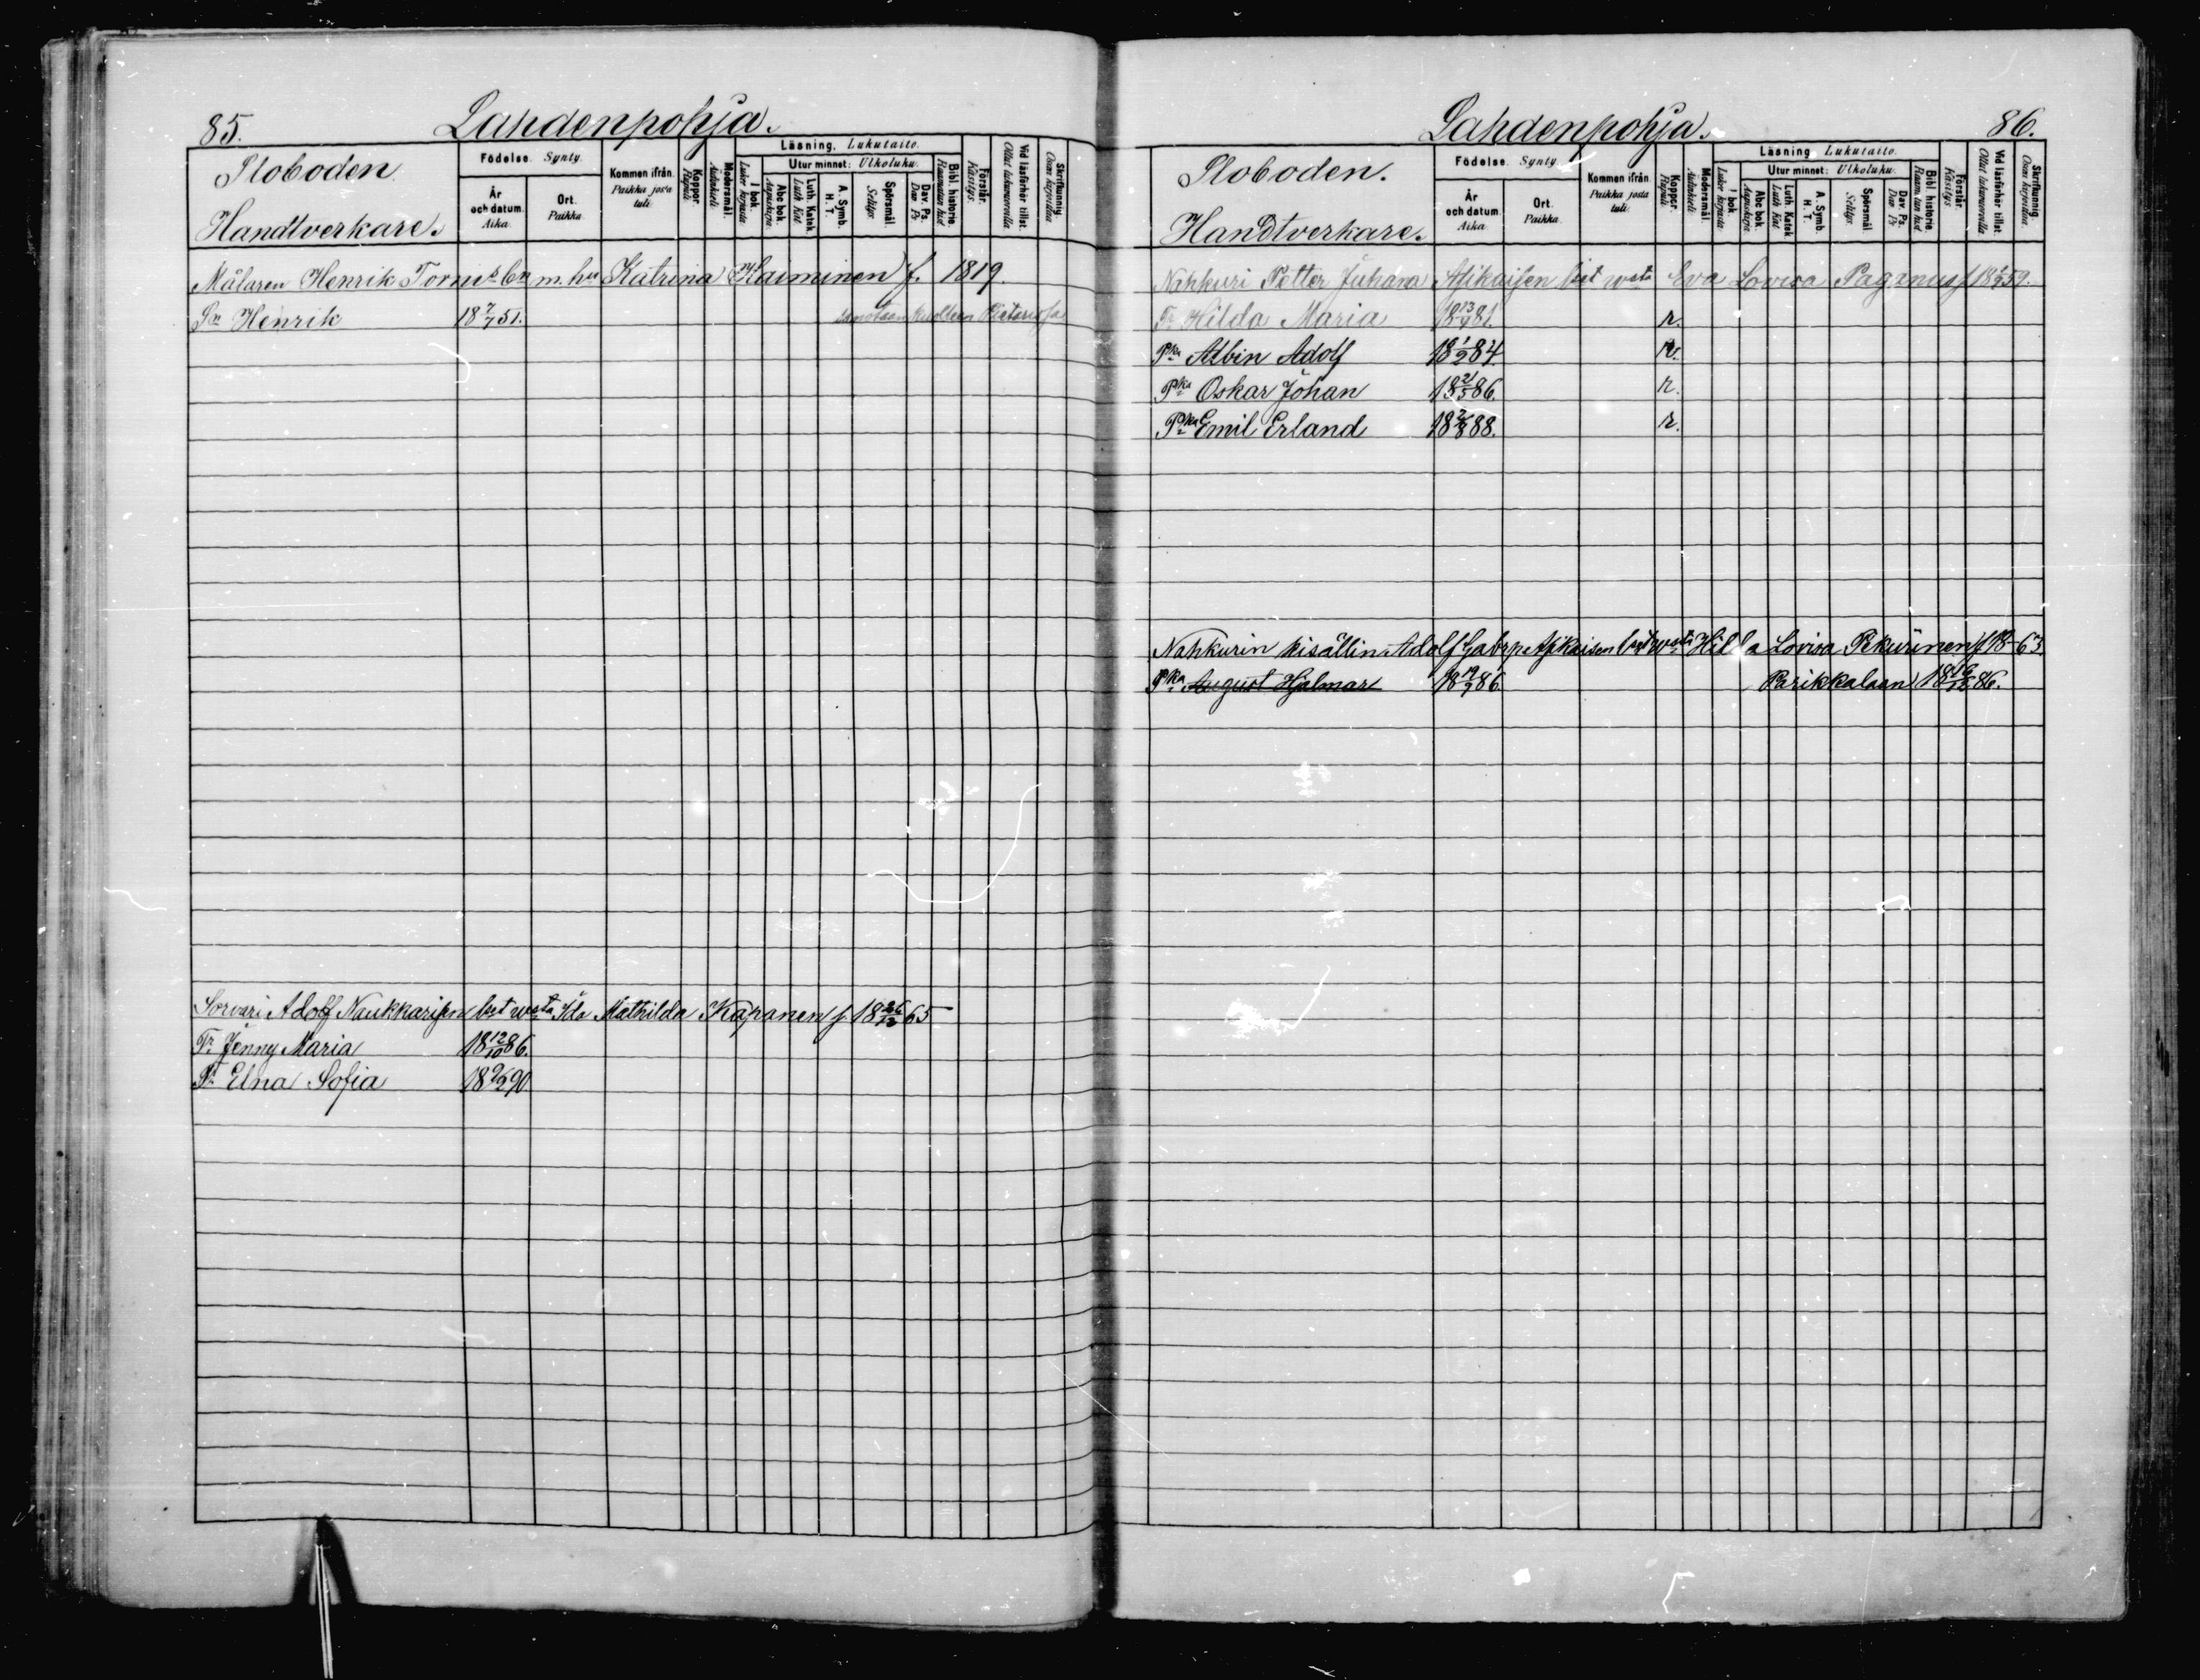 85. Lahdenpohja.
Sloboden
Handtverkare.
Födelse. Synty.
År och datum. Aika.
Ort. Paikka.
Kommen ifrån. Paikka josta tuli.
Koppor. Rupuli.
Modersmål. Äidinkieli.
Läsning. Lukutaito.
I bok. Lukee kirjasta.
Utur minnet: Ulkoluku.
Abc bok. Aapiskirja.
Luth. Katek. Luth. Kat.
A. Symb. H. T.
Spörsmål. Selitys.
Dav. Ps. Dav. Ps.
Bibl. historie. Raamatun hist.
Förstår. Käsitys.
Vid läsförhör tillst. Ollut lukuvuorolla
Skrifkunnig. Osaa kirjoittaa.
Målaren Henrik m. hu Katrina Haiminen f. 1819.
Sn Henrik 18 7/7 51. sanotaan kuolleen Pietarissa
Sorvari Adolf Naukkarisen lset wsta Ida Mathilda Kapanen f. 18 26/12 65
Tr Jenny Maria 18 12/10 86.
Tr Elna Sofia 18 9/2 90
Lahdenpohja. 86.
Sloboden.
Handtverkare.
Födelse. Synty.
År och datum. Aika.
Ort. Paikka.
Kommen ifrån. Paikka josta tuli.
Koppor. Rupuli.
Modersmål. Äidinkieli.
Läsning. Lukutaito.
I bok. Lukee kirjasta.
Utur minnet: Ulkoluku.
Abc bok. Aapiskirja
Luth. Katek. Luth. Kat.
A. Symb. H. T.
Spörsmål. Selitys.
Dav. Ps. Dav. Ps.
Bibl. historie. Raamatun hist.
Förstår. Käsitys.
Vid läsförhör tillst. Ollut lukuvuorolla
Skrifkunnig. Osaa kirjoittaa.
Nahkuri Petter Juhana Asikaisen lset wsta Eva Lovisa Paganus f. 59.
Tr Hilda Maria 18 13/9 81. r.
Pka Albin Adolf 18 1/9 84. r.
Pka Oskar Johan 18 21/5 86. r.
Pka Emil Erland 18 2/8 88. r.
Nahkurin kisällin Adolf Gabrp. Asikaisen lset wsta Hilda Lovisa Pekurinen f. 18-63.
Pka August Hjalmar 86. Parikkalaan 86.